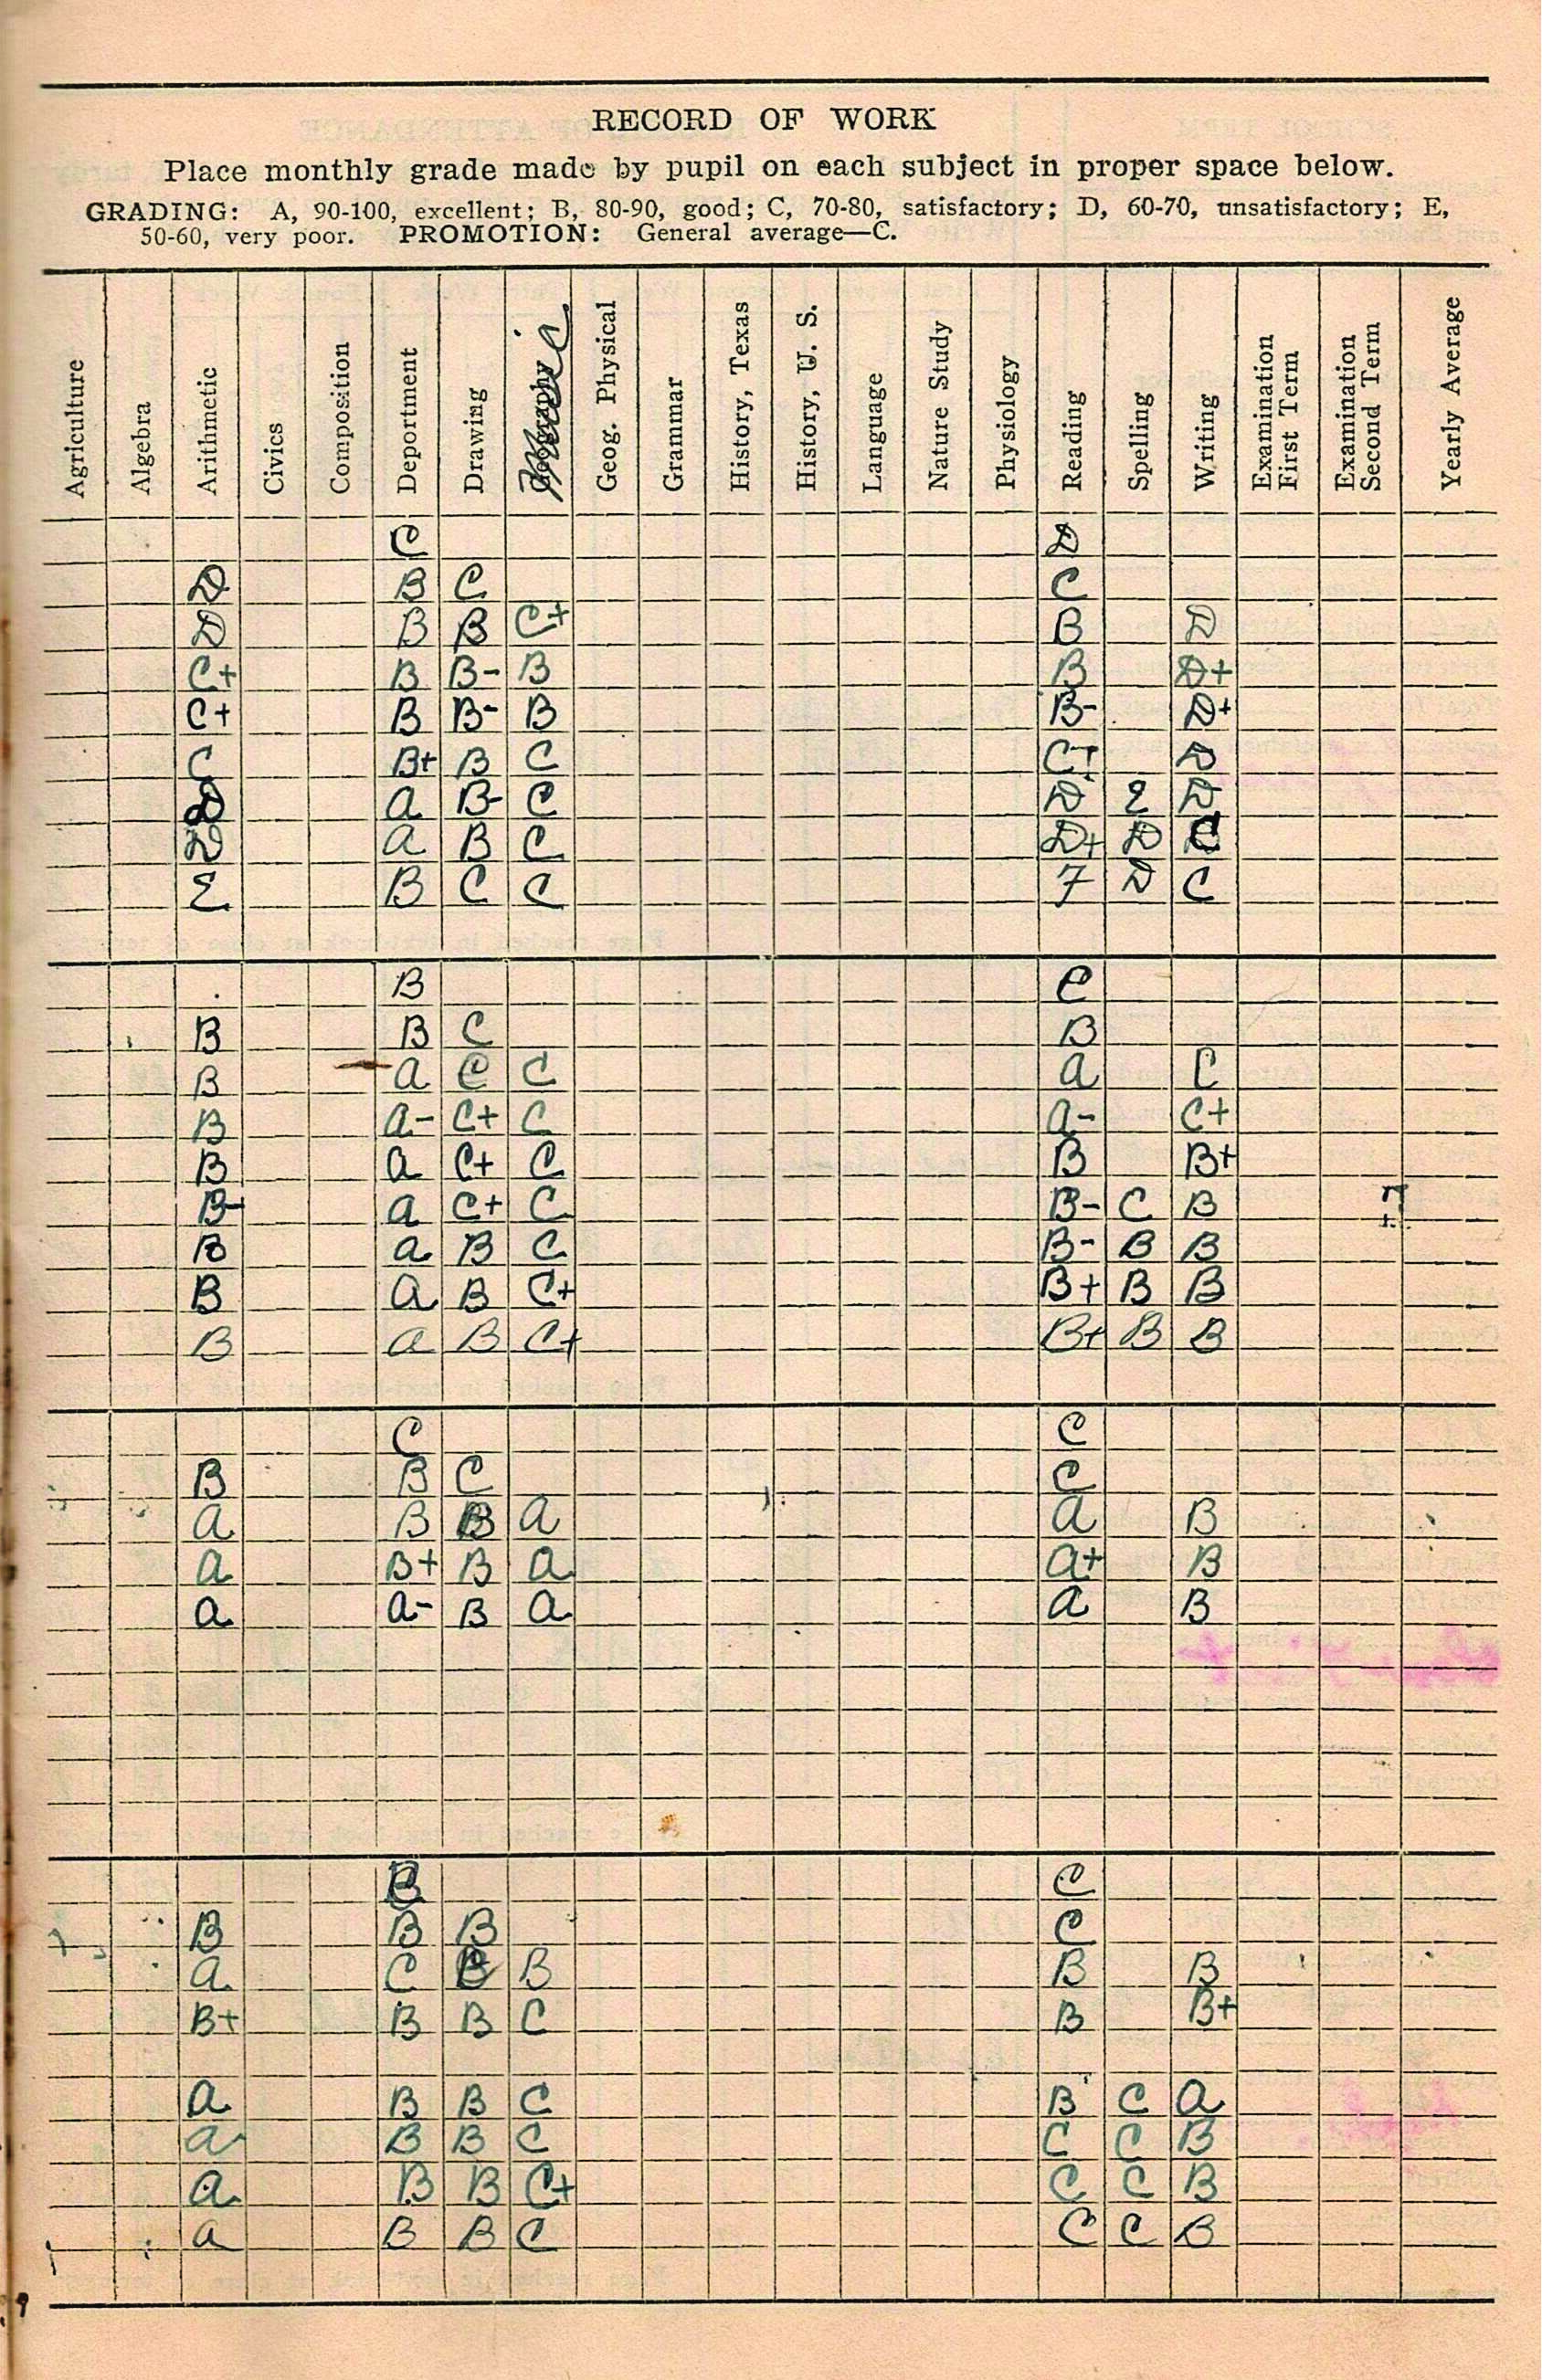 RECORD OF WORK
Place monthly grade made by pupil on each subject in proper space below.
GRADING: A, 90-100, excellent; B, 80-90, good; C, 70-80, satisfactory; D, 60-70, unsatisfactory; E,
50-60, very poor. PROMOTION: General average—C.
Agriculture Algebra Arithmetic Civics Composition Deportment Drawing Music Geog. Physical Grammar History, Texas History, U. S. Language Nature Study Physiology Reading Spelling Writing Examination First Term Examination Second Term Yearly Average
C D
D B C C
D B B C+ B D
C+ B B- B B D+
C+ B B- B B- D+
C B+ B C C+ D
D A B- C D E D
D A B C D+ D C
E B C C F D C
B C
B B C B
B A C C A C
B A- C+ C A- C+
B A C+ C B B+
B- A C+ C B- C B
B A B C B- B B
B A B C+ B+ B B
B A B C+ B+ B B
C C
B B C C
A B B A A B
A B+ B A A+ B
A A- B A A B
B C
B B B C
A C B B B B
B+ B B C B B+
A B B C B C A
A B B C C C B
A B B C+ C C B
A B B C C C B